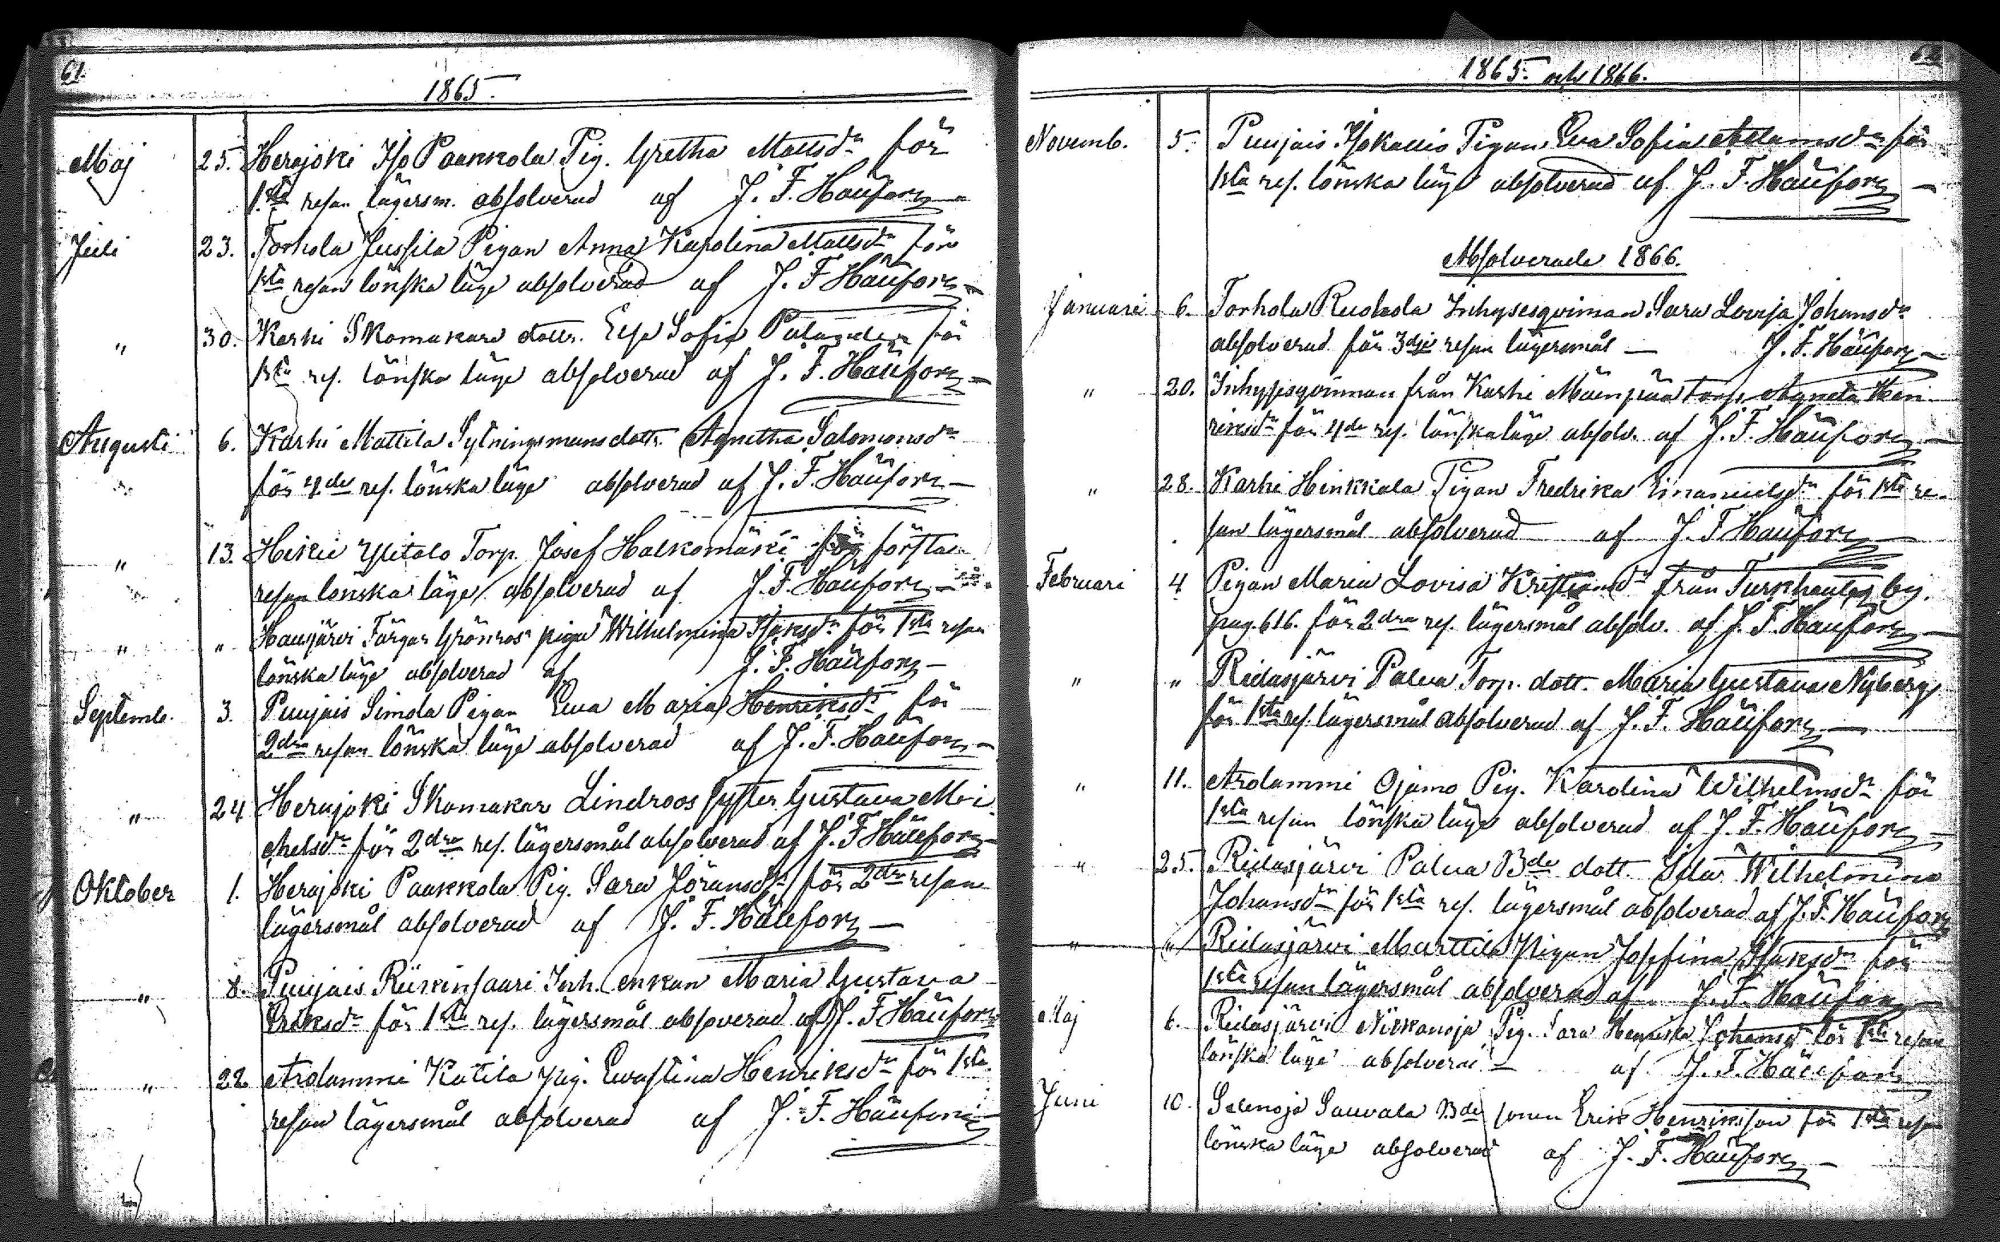 61.
1865.
Maj 25. Herajoki Iso Paakkola Pig. Gretha Mattsdr för
1sta resan lägersm. absolverad af J. F. Häüfors
Juli 23. Torhola Jussila Pigan Anna Karolina Mattsdr för
1sta resan lönska läge absolverad af J. F. Häüfors
" 30. Karhi Skomakare dottr. Eva Sofia för
1sta res. lönska läge absolverad af J. F. Häüfors
Augusti 6. Karhi Mattila Sytningsmans dottr. Agnetha Salomonsdr
för 4de res. lönska läge absolverad af J. F. Häüfors
" 13. Hikiä Ylitalo Torp. Josef Halkomäki för första
resan lönska läge absolverad af J. F. Häüfors
" " Hausjärvi Färgar Grönroos piga Wilhelmina Isaksdr för 1sta resan
lönska läge absolverad af J. F. Häüfors
Septemb. 3. Puujais Simola Pigan Ewa Maria Henriksdr för
2dra resan lönska läge absolverad af J. F. Häüfors
" 24 Herajoki Skomakar Lindroos syster Gustava Mi-
chelsdr för 2dra res. lägersmål absolverad af J. F. Häüfors
Oktober 1. Herajoki Paakkola Pig. Sara Göransdr för 2dra resan
lägersmål absolverad af J. F. Häüfors
" 8. Puujais Riikinsaari Inh. enkan Maria Gustava
Eriksdr för 1sta res. lägersmål absolverad af J. F. Häüfors
" 22 Arolammi Katila pig. Evastina Henriksdr för 1sta
resan lägersmål absolverad af J. F. Häüfors
62
1865. och 1866.
Novemb. 5. Puujais Isokallio Pigan Eva Sofia Adamsdr för
1sta res. lönska läge absolverad af J. F. Häüfors
Absolverade 1866.
Januari 6. Torhola Ruskola Inhysesqvinnan Sara Lovisa Johansdr
absolverad för 3dje resan lägersmål J. F. Häüfors
" 20. Inhysesqvinnan från Karhi Mäenpää torp Agneta Hen-
riksdr för 4de res. lönska läge absolv. af J. F. Häüfors
" 28. Karhi Heikkala Pigan Fredrika Emanuelsdr för 1sta re-
san lägersmål absolverad af J. F. Häüfors
Februari 4 Pigan Maria Lovisa från Turkhauta by.
pag. 616. för 2dra res. lägersmål absolv. af J. F. Häüfors
" " Ridasjärvi Palva Torp. dott. Maria Gustava Nyberg
för 1sta res. lägersmål absolverad af J. F. Häüfors
" 11. Arolammi Ojamo Pig. Karolina Wilhelmsdr för
1sta resan lönska läge absolverad af J. F. Häüfors
" 25. Ridasjärvi Palva Bde dott. Ida Wilhelmina
Johansdr för 1sta res. lägersmål absolverad af J. F. Häüfors
" " Ridasjärvi Marttila Pigan Josefina Isaksdr för
1sta resan lägersmål absolverad af J. F. Häüfors
Maj 6. Ridasjärvi Pig. Sara Johansdr för 1sta resan
lönska läge absolverad af J. F. Häüfors
Juni 10. Selenoja Sauvala Bde sonen Erik Henriksson för 1sta resan
lönska läge absolverad af J. F. Häüfors